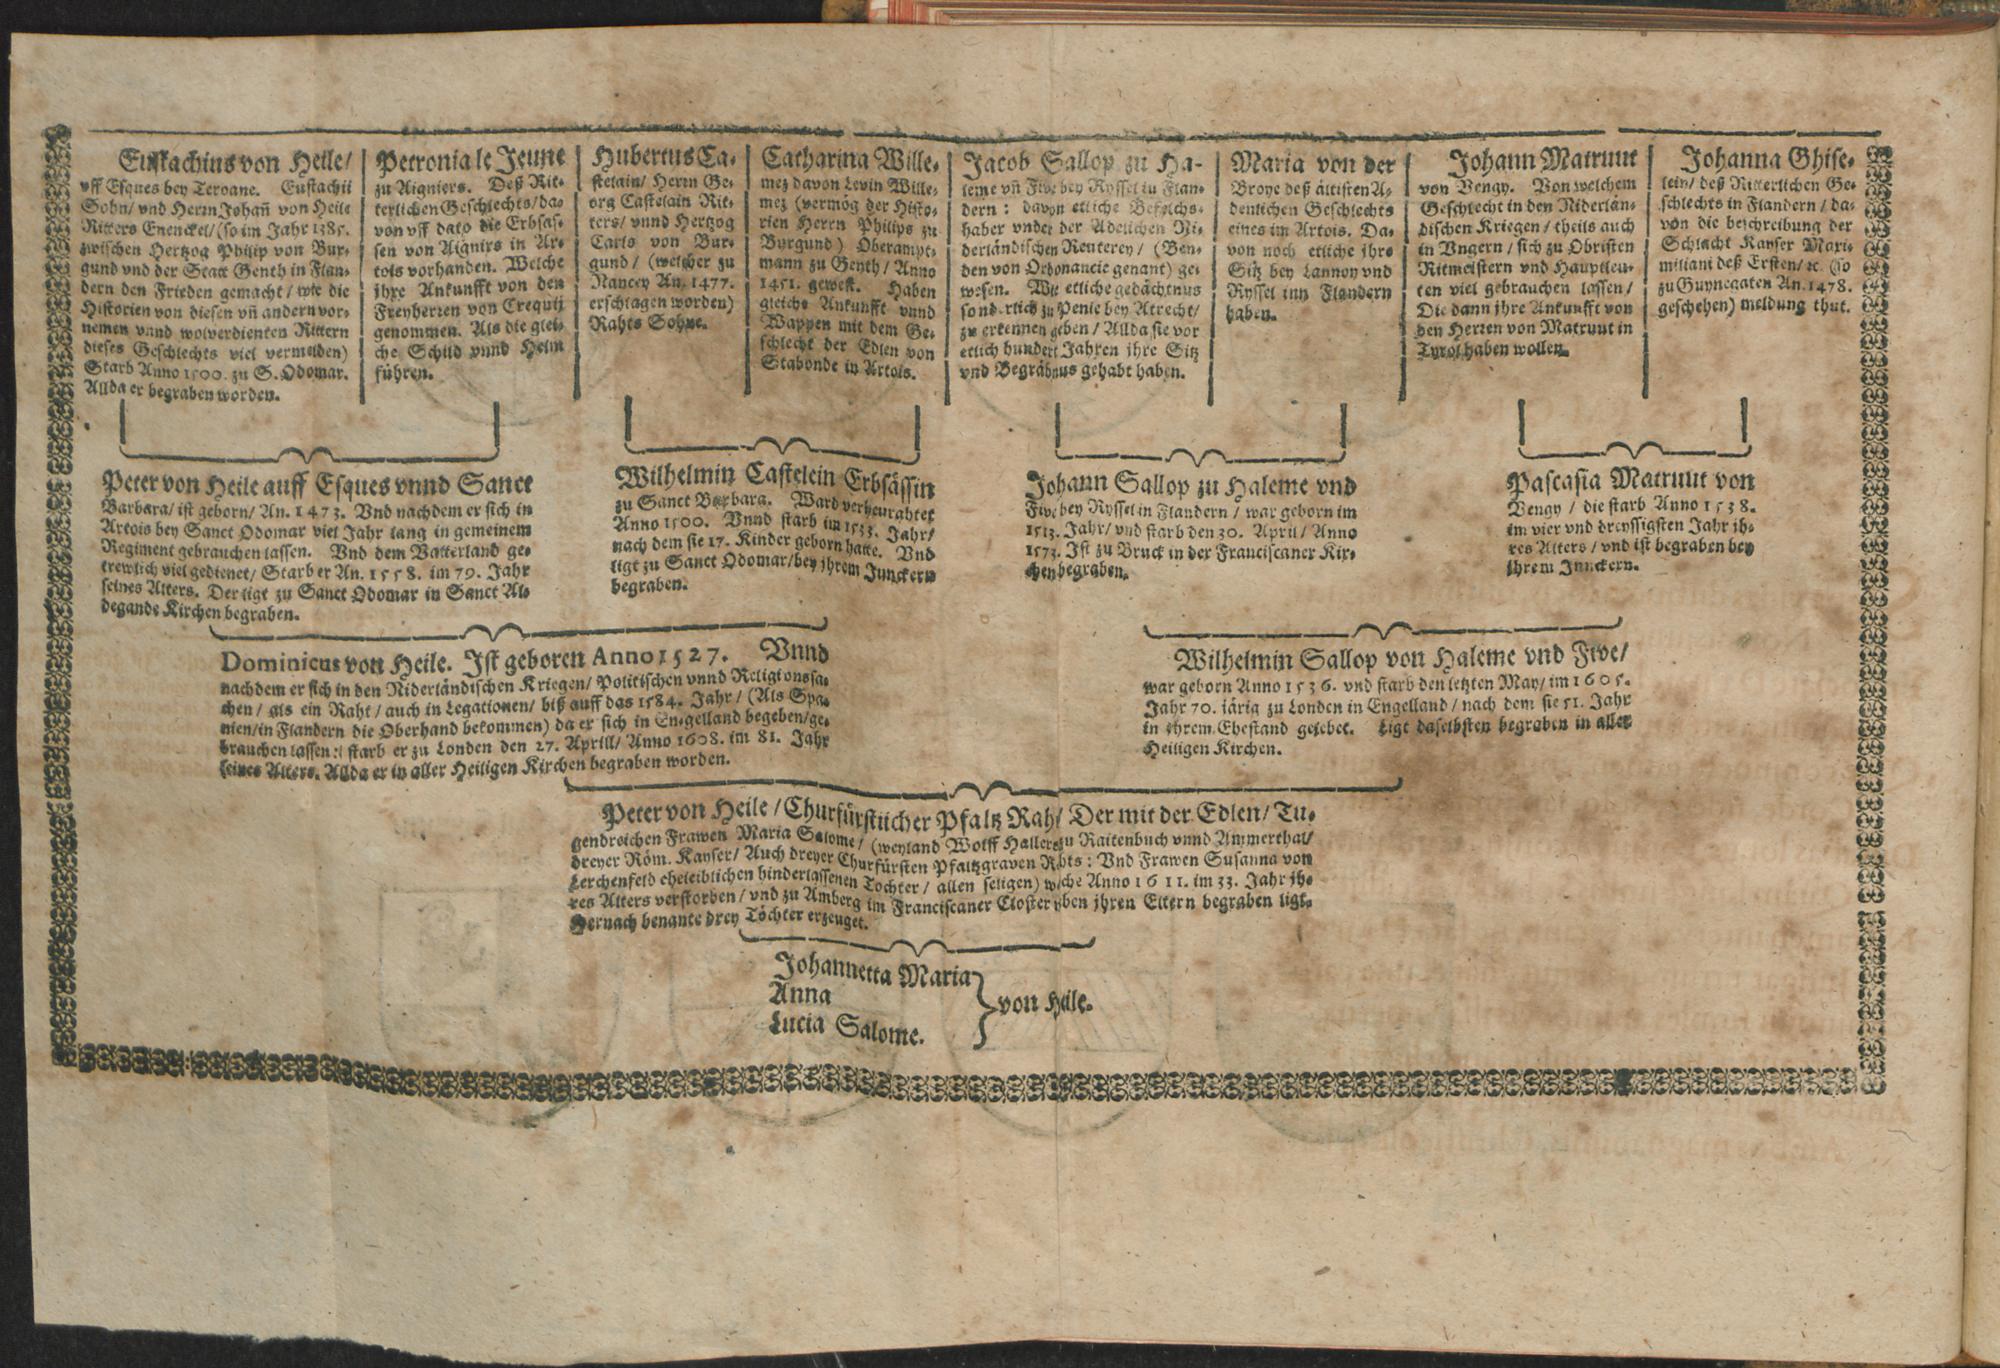 Eustachius von Heile/
vff Esques bey Teroane. Eustachii
Sohn/ vnd Herrn Johañ von Heile
Ritters Enenckel/ (so im Jahr 1385.
zwischen Hertzog Philip von Bur-
gund vnd der Statt Genth in Flan-
dern den Frieden gemacht/ wie die
Historien von diesen vñ andern vor-
nemen vnnd wolverdienten Rittern
dieses Geschlechts viel vermelden)
Starb Anno 1500. zu S. Odomar.
Allda er begraben worden.
Petronia le Jeune
zu Aigniers. Deß Rit-
terlichen Geschlechts/ da-
von vff dato die Erbsas-
sen von Aignirs in Ar-
tois vorhanden. Welche
jhre Ankunfft von den
Freyherren von Crequij
genommen. Als die glei-
che Schild vnnd Helm
führen.
Hubertus Ca-
stelain/ Herrn Ge-
org Castelain Rit-
ters/ vnnd Hertzog
Carls von Bur-
gund/ (welcher zu
Nancey An. 1477.
erschlagen worden)
Rahts Sohne.
Catharina Wille-
mez davon Levin Wille-
mez (vermög der Histo-
rien Herrn Philips zu
Burgund) Oberampt-
mann zu Genth/ Anno
1451. gewest. Haben
gleiche Ankunfft vnnd
Wappen mit dem Ge-
schlecht der Edlen von
Stabonde in Artois.
Jacob Sallop zu Ha-
leme vñ Five bey Ryssel in Flan-
dern: davon etliche Befelchs-
haber vnder der Adelichen Ni-
derländischen Reuterey/ (Ben-
den von Ordonancie genant) ge-
wesen. Wie etliche gedächtnus
sonderlich zu Penie bey Atrecht/
zu erkennen geben/ Allda sie vor
etlich hundert Jahren jhre Sitz
vnd Begräbnus gehabt haben.
Maria von der
Broye deß ältisten A-
denlichen Geschlechts
eines im Artois. Da-
von noch etliche jhre
Sitz bey Lannoy vnd
Ryssel inn Flandern
haben.
Johann Matruut
von Vengy. Von welchem
Geschlecht in den Niderlän-
dischen Kriegen/ theils auch
in Vngern/ sich zu Obristen
Ritmeistern vnd Hauptleu-
ten viel gebrauchen lassen/
Die dann jhre Ankunfft von
den Herren von Matruut in
Tyrol haben wollen.
Johanna Ghise-
lein/ deß Ritterlichen Ge-
schlechts in Flandern/ da-
von die beschreibung der
Schlacht Kayser Maxi-
miliani deß Ersten/ ꝛc. (so
zu Guynegaten An. 1478.
geschehen) meldung thut.
Peter von Heile auff Esques vnnd Sanct
Barbara/ ist geborn/ An. 1473. Vnd nachdem er sich in
Artois bey Sanct Odomar viel Jahr lang in gemeinem
Regiment gebrauchen lassen. Vnd dem Vatterland ge-
trewlich viel gedienet/ Starb er An. 1558. im 79. Jahr
seines Alters. Der ligt zu Sanct Odomar in Sanct Al-
degande Kirchen begraben.
Wilhelmin Castelein Erbsässin
zu Sanct Barbara. Ward verheurahtet
Anno 1500. Vnnd starb im 1533. Jahr/
nach dem sie 17. Kinder geborn hatte. Vnd
ligt zu Sanct Odomar/ bey jhrem Junckern
begraben.
Johann Sallop zu Haleme vnd
Five bey Ryssel in Flandern/ war geborn im
1513. Jahr/ vnd starb den 30. April/ Anno
1573. Ist zu Bruck in der Franciscaner Kir-
chen begraben.
Pascasia Matruut von
Vengy/ die starb Anno 1538.
im vier vnd dreyssigsten Jahr jh-
res Alters/ vnd ist begraben bey
jhrem Junckern.
Dominicus von Heile. Ist geboren Anno 1527. Vnnd
nachdem er sich in den Niderländischen Kriegen/ Politischen vnnd Religionssa-
chen/ als ein Raht/ auch in Legationen/ biß auff das 1584. Jahr/ (Als Spa-
nien/ in Flandern die Oberhand bekommen) da er sich in Engelland begeben/ ge-
brauchen lassen: starb er zu Londen den 27. Aprill/ Anno 1608. im 81. Jahr
seines Alters. Allda er in aller Heiligen Kirchen begraben worden.
Wilhelmin Sallop von Haleme vnd Five/
war geborn Anno 1536. vnd starb den letzten May/ im 1605.
Jahr 70. järig zu Londen in Engelland/ nach dem sie 51. Jahr
in jhrem Ehestand gelebet. Ligt daselbsten begraben in aller
Heiligen Kirchen.
Peter von Heile/ Churfürstlicher Pfaltz Raht/ Der mit der Edlen/ Tu-
gendreichen Frawen Maria Salome/ (weyland Wolff Hallers zu Raitenbuch vnnd Ammerthal/
dreyer Röm. Kayser/ Auch dreyer Churfürsten Pfaltzgraven Rahts: Vnd Frawen Susanna von
Lerchenfeld eheleiblichen hinderlassenen Tochter/ allen seligen) welche Anno 1611. im 33. Jahr jh-
res Alters verstorben/ vnd zu Amberg im Franciscaner Closter neben jhren Eltern begraben ligt.
Hernach benante drey Töchter erzeuget.
Johannetta Maria
Anna
Lucia Salome.
von Heile.